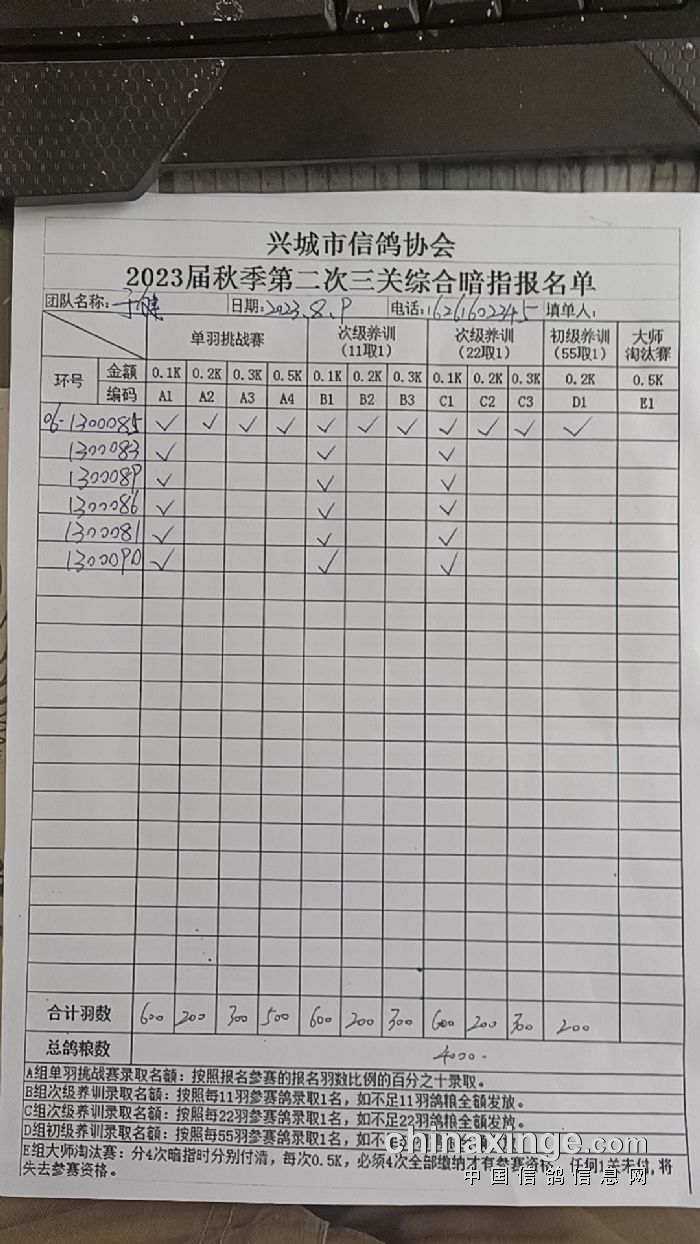 兴城市信鸽协会
2023届秋季第二次三关综合暗指报名单
团队名称: 于健 日期: 2023.8.9 电话: 16261602345 填单人:
单羽挑战赛 次级养训 (11取1) 次级养训 (22取1) 初级养训 (55取1) 大师 淘汰赛
环号 金额 0.1K 0.2K 0.3K 0.5K 0.1K 0.2K 0.3K 0.1K 0.2K 0.3K 0.2K 0.5K
编码 A1 A2 A3 A4 B1 B2 B3 C1 C2 C3 D1 E1
06-1300085 ✓ ✓ ✓ ✓ ✓ ✓ ✓ ✓ ✓ ✓ ✓
1300083 ✓ ✓ ✓
1300089 ✓ ✓ ✓
1300086 ✓ ✓ ✓
1300081 ✓ ✓ ✓
1300090 ✓ ✓ ✓
合计羽数 600 200 300 500 600 200 300 600 200 300 200
总鸽粮数 4000-
A组单羽挑战赛录取名额: 按照报名参赛的报名羽数比例的百分之十录取。
B组次级养训录取名额: 按照每11羽参赛鸽录取1名, 如不足11羽鸽粮全额发放。
C组次级养训录取名额: 按照每22羽参赛鸽录取1名, 如不足22羽鸽粮全额发放。
D组初级养训录取名额: 按照每55羽参赛鸽录取1名, 如不
E组大师淘汰赛: 分4次暗指时分别付清, 每次0.5K, 必须4次全部缴纳才有参赛资格, 任何1关未付, 将
失去参赛资格。
chinaxinge.com
中国信鸽信息网